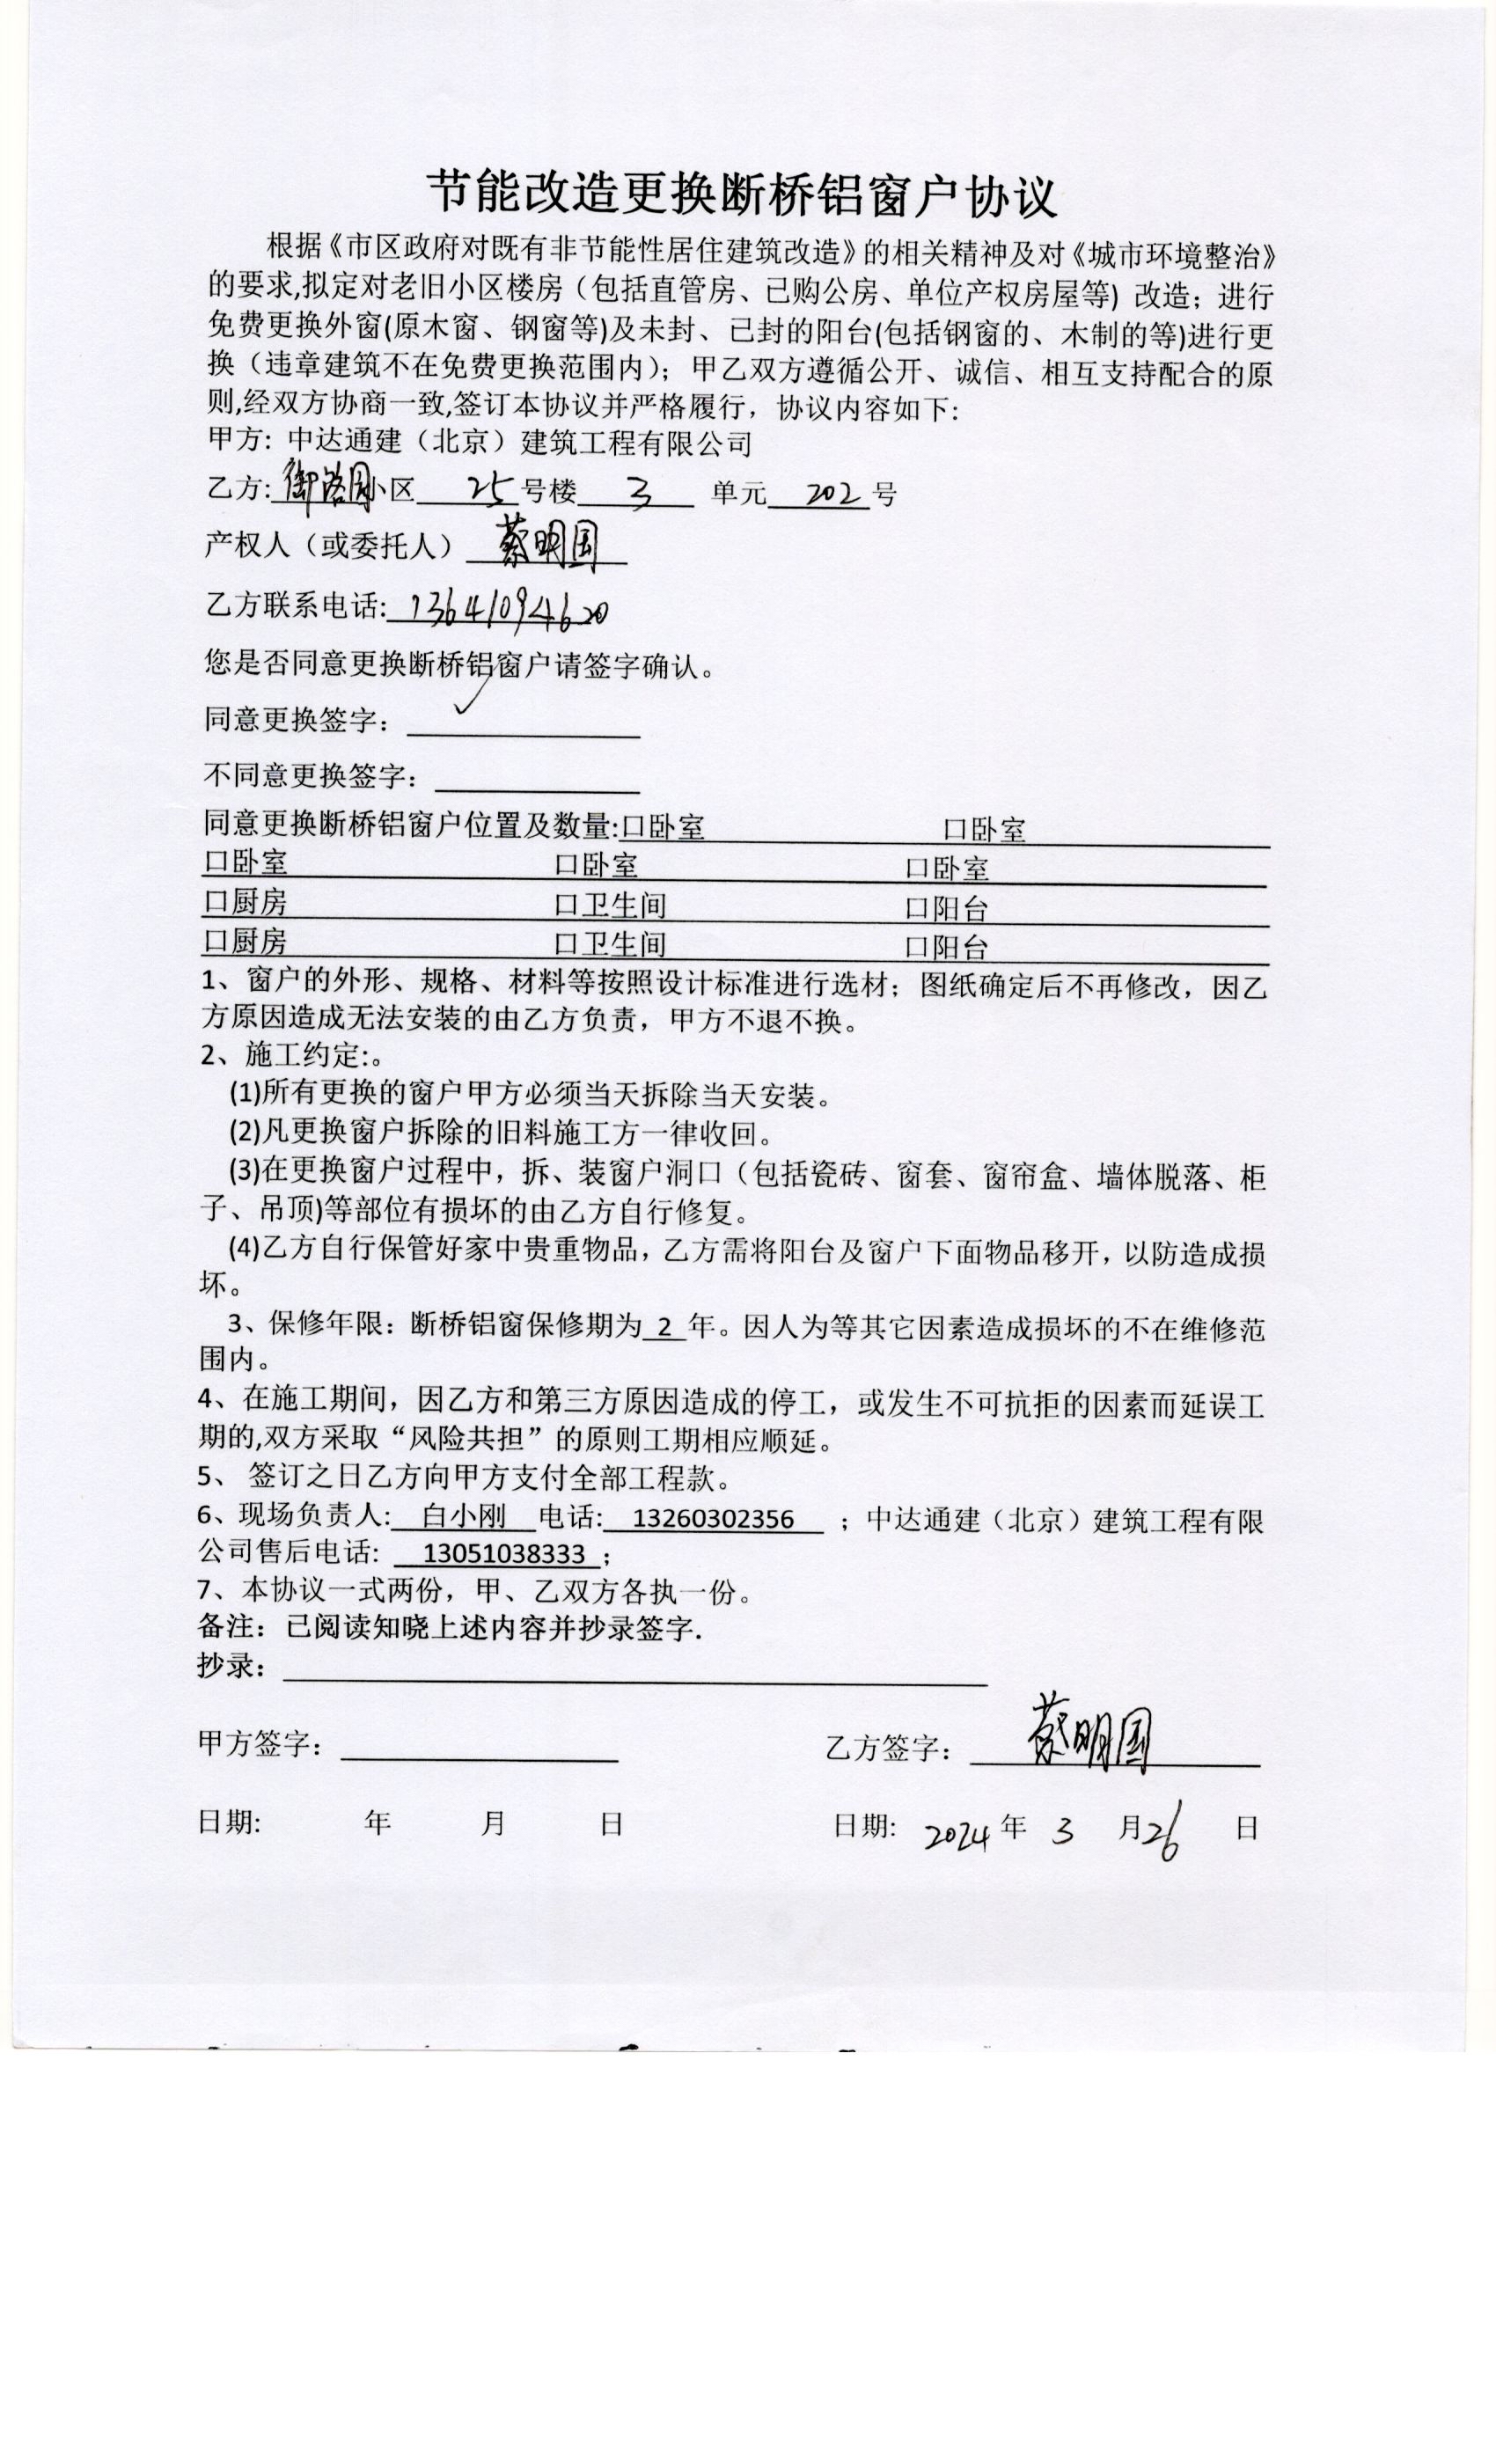 节能改造更换断桥铝窗户协议
根据《市区政府对既有非节能性居住建筑改造》的相关精神及对《城市环境整治》
的要求,拟定对老旧小区楼房（包括直管房、已购公房、单位产权房屋等）改造；进行
免费更换外窗(原木窗、钢窗等)及未封、已封的阳台(包括钢窗的、木制的等)进行更
换（违章建筑不在免费更换范围内）；甲乙双方遵循公开、诚信、相互支持配合的原
则,经双方协商一致,签订本协议并严格履行，协议内容如下:
甲方: 中达通建（北京）建筑工程有限公司
乙方: 御路园小区 25 号楼 3 单元 202 号
产权人（或委托人） 蔡明国
乙方联系电话: 13641094620
您是否同意更换断桥铝窗户请签字确认。
同意更换签字： ✓
不同意更换签字：
同意更换断桥铝窗户位置及数量:口卧室 口卧室
口卧室 口卧室 口卧室
口厨房 口卫生间 口阳台
口厨房 口卫生间 口阳台
1、窗户的外形、规格、材料等按照设计标准进行选材；图纸确定后不再修改，因乙
方原因造成无法安装的由乙方负责，甲方不退不换。
2、施工约定:。
(1)所有更换的窗户甲方必须当天拆除当天安装。
(2)凡更换窗户拆除的旧料施工方一律收回。
(3)在更换窗户过程中，拆、装窗户洞口（包括瓷砖、窗套、窗帘盒、墙体脱落、柜
子、吊顶)等部位有损坏的由乙方自行修复。
(4)乙方自行保管好家中贵重物品，乙方需将阳台及窗户下面物品移开，以防造成损
坏。
3、保修年限：断桥铝窗保修期为 2 年。因人为等其它因素造成损坏的不在维修范
围内。
4、在施工期间，因乙方和第三方原因造成的停工，或发生不可抗拒的因素而延误工
期的,双方采取“风险共担”的原则工期相应顺延。
5、 签订之日乙方向甲方支付全部工程款。
6、现场负责人: 白小刚 电话: 13260302356 ；中达通建（北京）建筑工程有限
公司售后电话: 13051038333 ；
7、本协议一式两份，甲、乙双方各执一份。
备注：已阅读知晓上述内容并抄录签字.
抄录：
甲方签字： 乙方签字： 蔡明国
日期: 年 月 日 日期: 2024 年 3 月 26 日